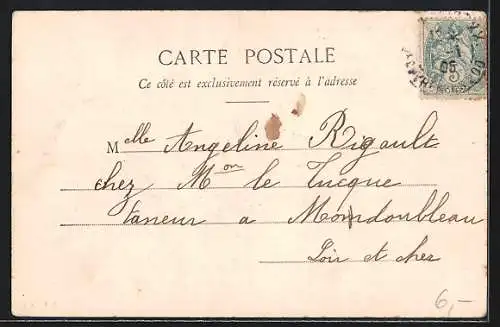 CARTE POSTALE
Ce côté est exclusivement réservé à l'adresse
Melle Angeline Rigault
chez Mon le Tucque
taneur a Mondoubleau
Loir et cher
6,-